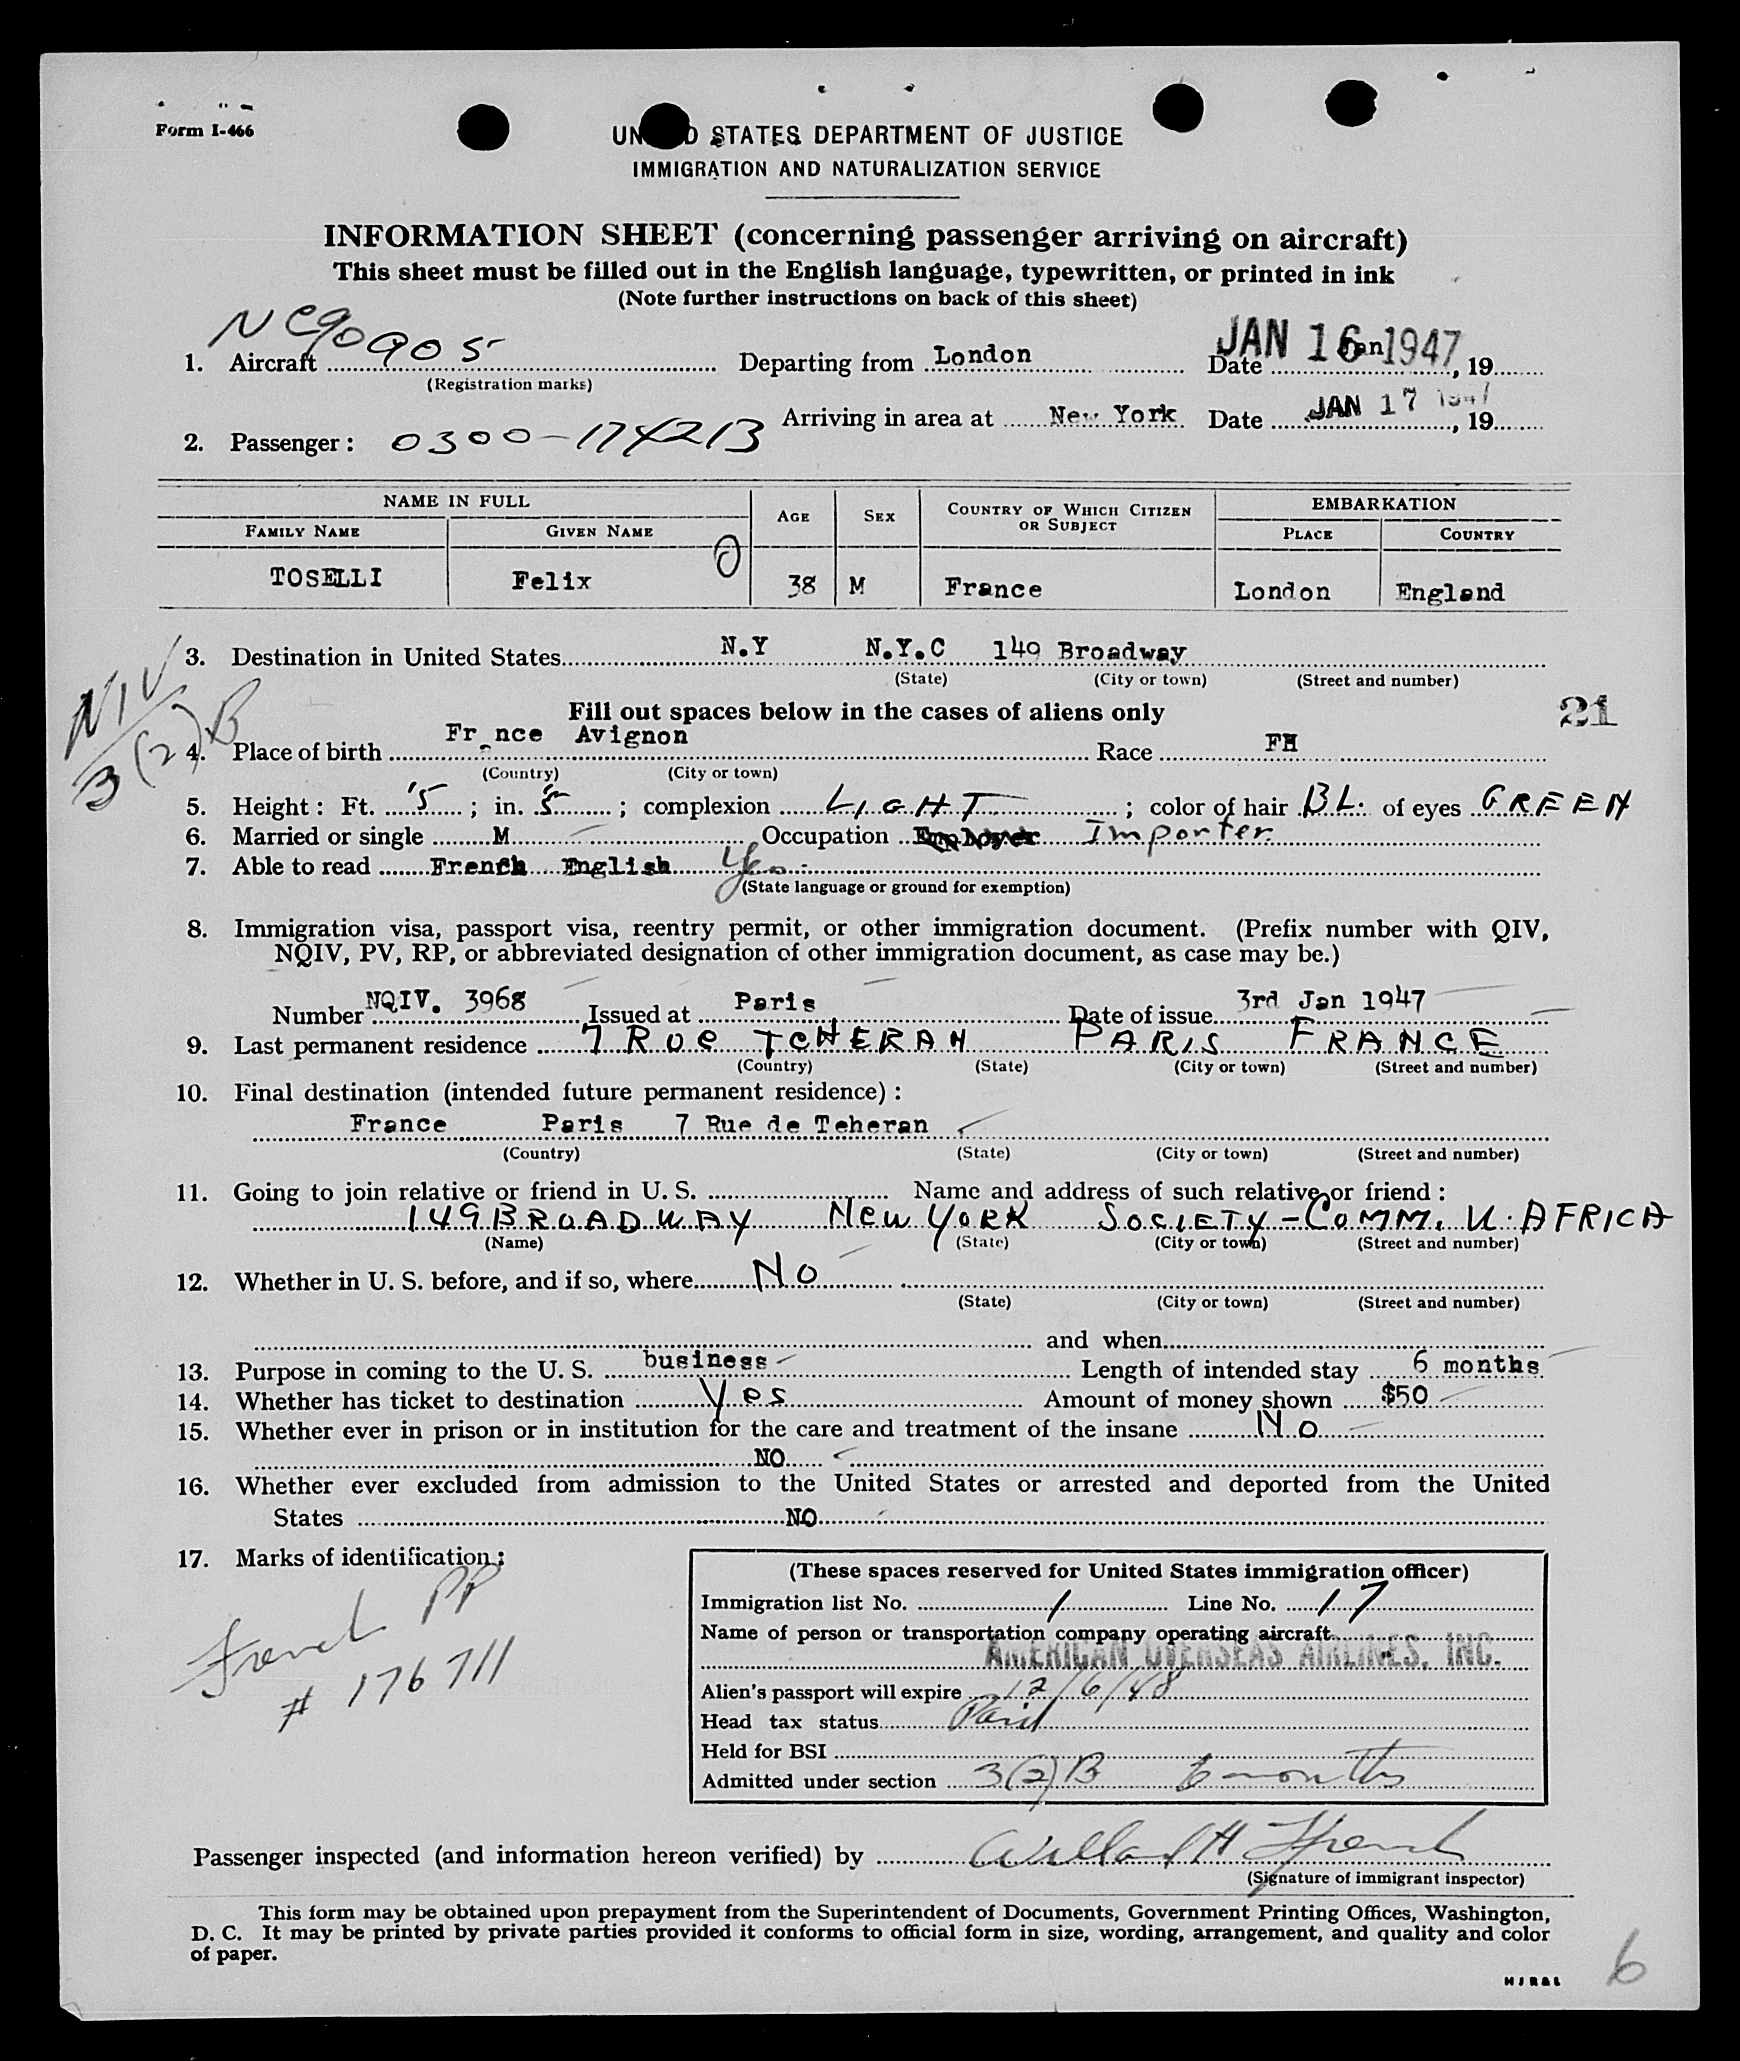 Form I-466
UNITED STATES DEPARTMENT OF JUSTICE
IMMIGRATION AND NATURALIZATION SERVICE
INFORMATION SHEET (concerning passenger arriving on aircraft)
This sheet must be filled out in the English language, typewritten, or printed in ink
(Note further instructions on back of this sheet)
1. Aircraft NC90905 Departing from London Date JAN 16 1947, 19
(Registration marks)
Arriving in area at New York Date JAN 17 1947, 19
2. Passenger: 0300-174213
NAME IN FULL AGE SEX COUNTRY OF WHICH CITIZEN OR SUBJECT EMBARKATION
FAMILY NAME GIVEN NAME PLACE COUNTRY
TOSELLI Felix 38 M France London England
NIV 3(2)B
3. Destination in United States N.Y N.Y.C 149 Broadway
(State) (City or town) (Street and number)
Fill out spaces below in the cases of aliens only
21
4. Place of birth Fr nce Avignon Race FH
(Country) (City or town)
5. Height: Ft. 5; in. 5; complexion LIGHT; color of hair BL. of eyes GREEN
6. Married or single M Occupation Employer Importer
7. Able to read French English Yes
(State language or ground for exemption)
8. Immigration visa, passport visa, reentry permit, or other immigration document. (Prefix number with QIV,
NQIV, PV, RP, or abbreviated designation of other immigration document, as case may be.)
Number NQIV. 3968 Issued at Paris Date of issue 3rd Jan 1947
9. Last permanent residence 7 Rue TEHERAN PARIS FRANCE
(Country) (State) (City or town) (Street and number)
10. Final destination (intended future permanent residence):
France Paris 7 Rue de Teheran
(Country) (State) (City or town) (Street and number)
11. Going to join relative or friend in U. S. Name and address of such relative or friend:
149 BROADWAY New YORK SOCIETY-COMM. U. AFRICA
(Name) (State) (City or town) (Street and number)
12. Whether in U. S. before, and if so, where No
(State) (City or town) (Street and number)
and when
13. Purpose in coming to the U. S. business Length of intended stay 6 months
14. Whether has ticket to destination Yes Amount of money shown $50
15. Whether ever in prison or in institution for the care and treatment of the insane No
NO
16. Whether ever excluded from admission to the United States or arrested and deported from the United
States NO
17. Marks of identification:
French PP
# 176711
(These spaces reserved for United States immigration officer)
Immigration list No. 1 Line No. 17
Name of person or transportation company operating aircraft
AMERICAN OVERSEAS AIRLINES, INC.
Alien's passport will expire 12/6/48
Head tax status Paid
Held for BSI
Admitted under section 3(2)B 6 months
Passenger inspected (and information hereon verified) by Willard H
(Signature of immigrant inspector)
This form may be obtained upon prepayment from the Superintendent of Documents, Government Printing Offices, Washington,
D. C. It may be printed by private parties provided it conforms to official form in size, wording, arrangement, and quality and color
of paper.
6